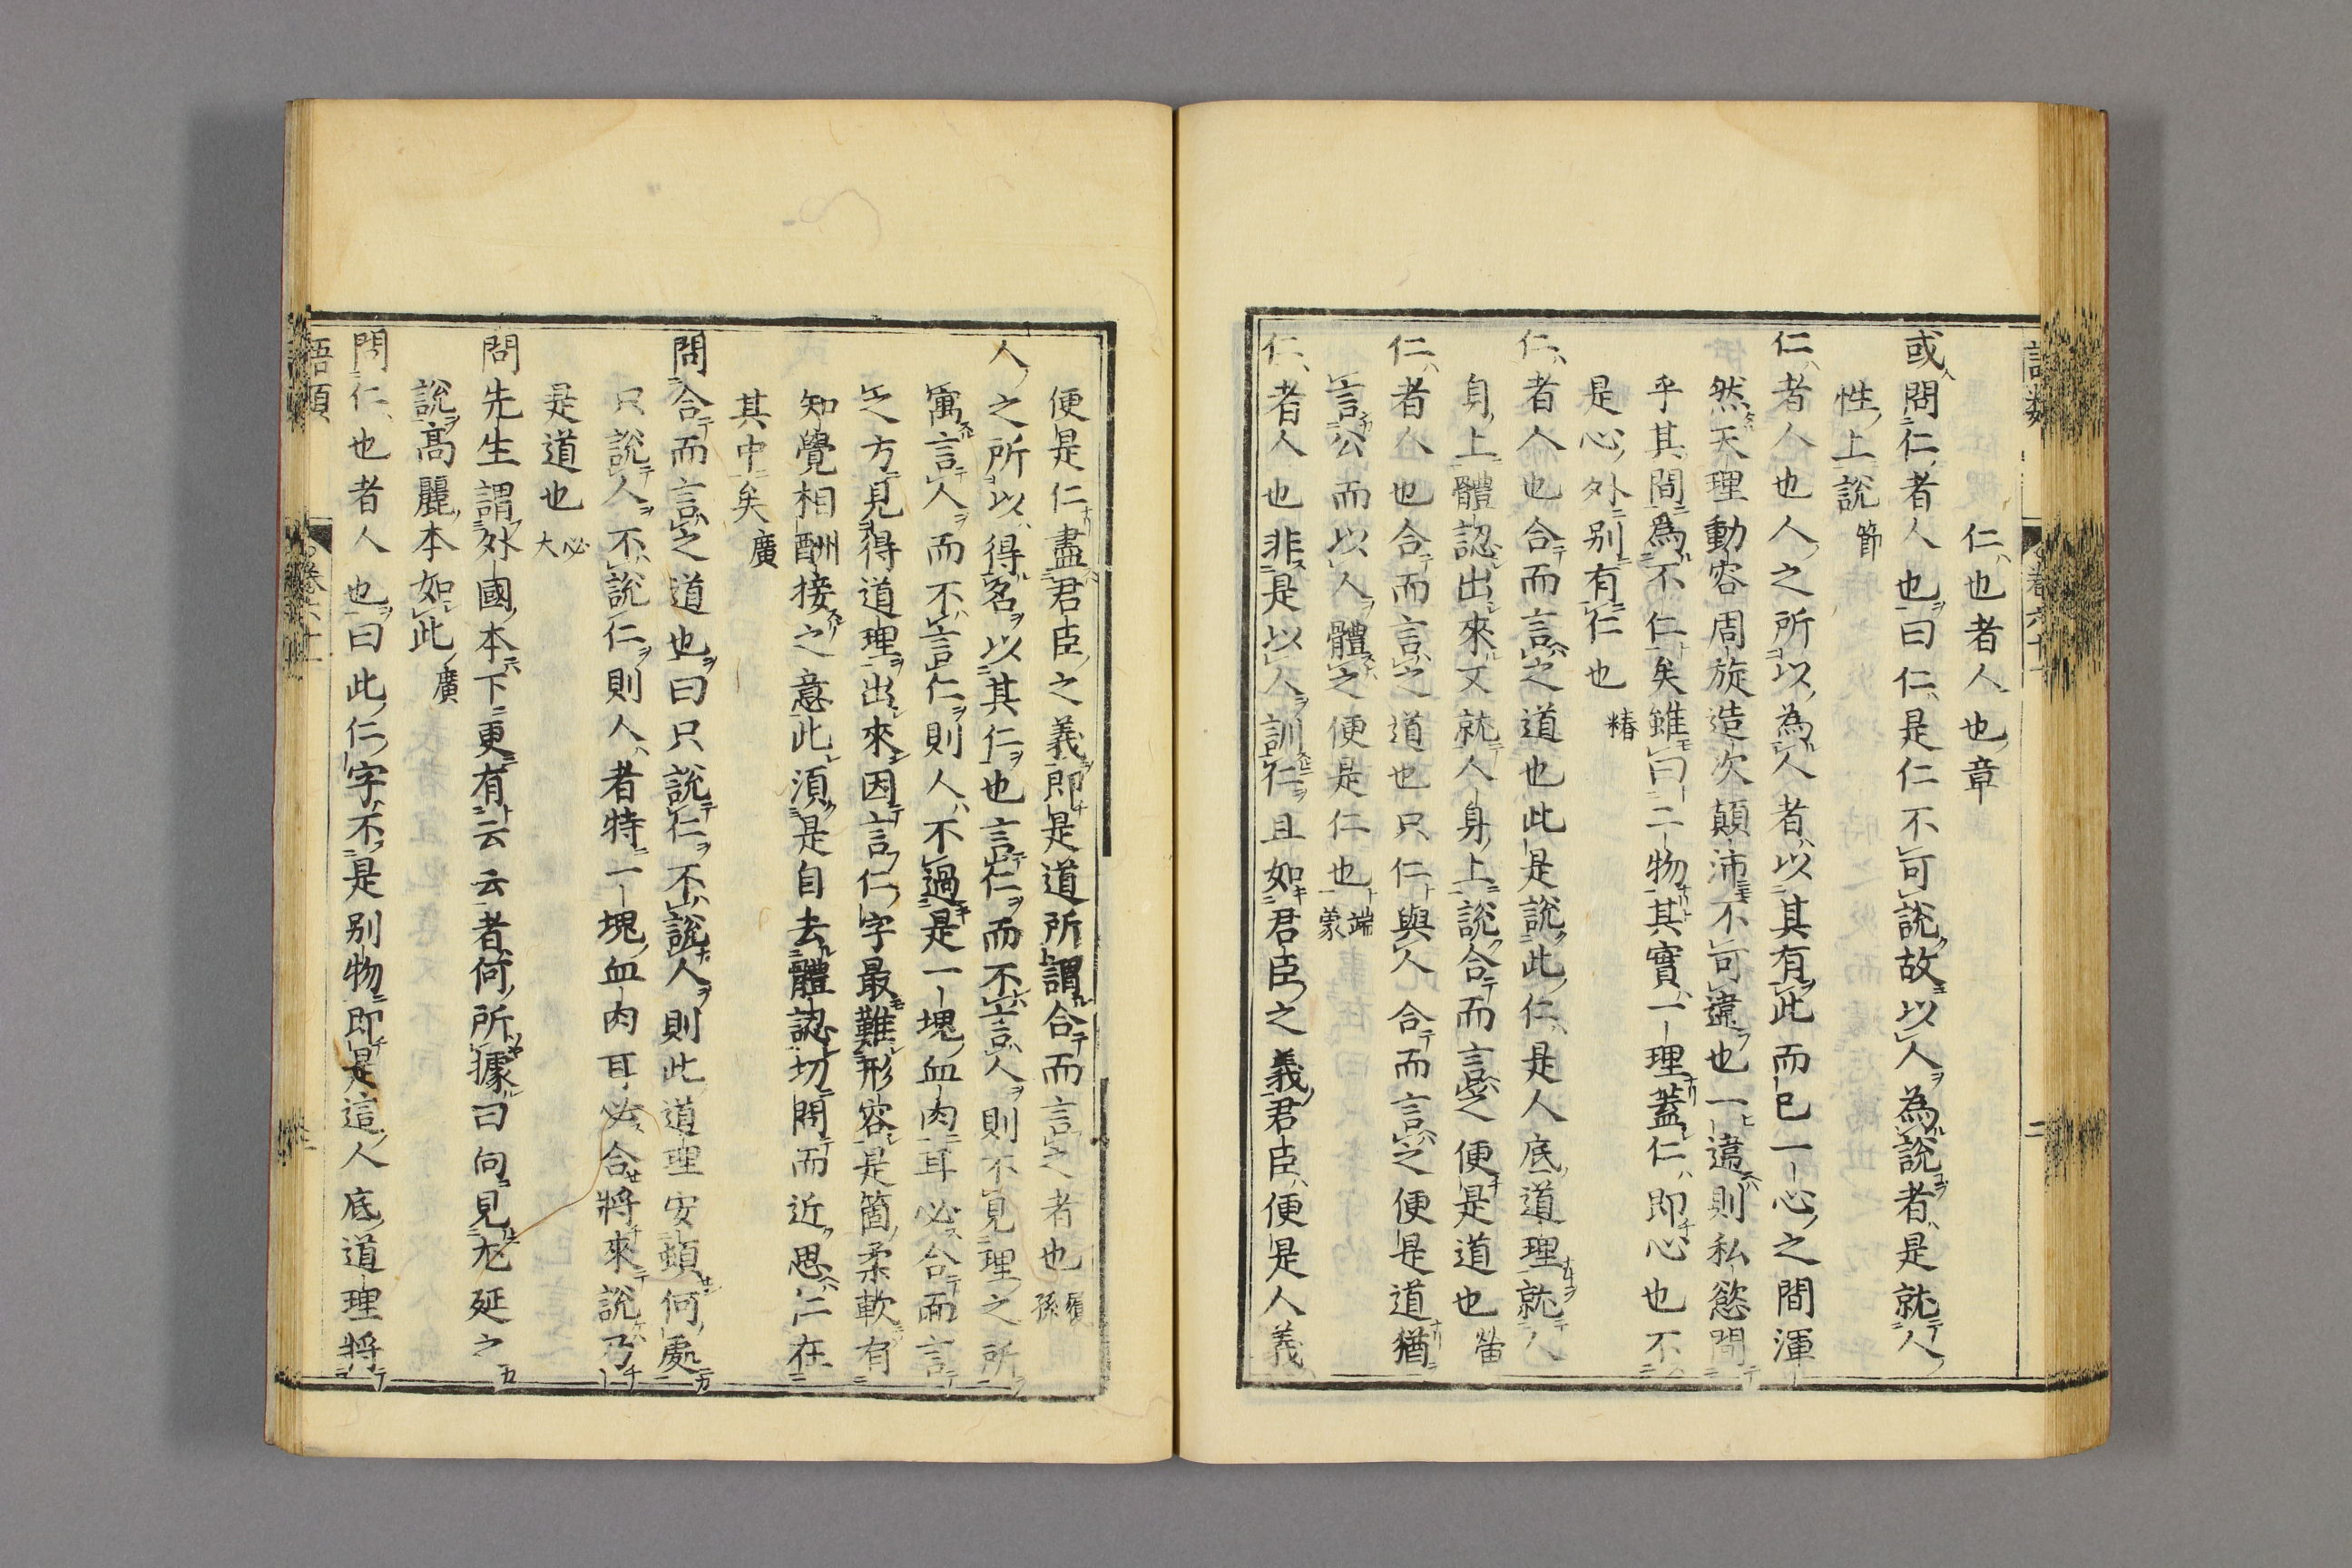 仁也者人也章
或問仁者人也曰仁是仁不可說故以人為說者是就人
性上說節
仁者人也人之所以為人者以其有此而已一心之間渾
然天理動容周旋造次顛沛不可違也一違則私慾間
乎其間為不仁矣雖曰二物其實一理蓋仁即心也不
是心外別有仁也椿
仁者人也合而言之道也此是說此仁是人底道理就人
身上體認出來又就人身上說合而言之便是道也㽦
仁者人也合而言之道也只仁與人合而言之便是道猶
言公而以人體之便是仁也端蒙
仁者人也非是以人訓仁且如君臣之義君臣便是人義
便是仁盡君臣之義即是道所謂合而言之者也履孫
人之所以得名以其仁也言仁而不言人則不見理之所
寓言人而不言仁則人不過是一塊血肉耳必合而言
之方見得道理出來因言仁字最難形容是箇柔軟有
知覺相酬接之意此須是自去體認切問而近思仁在
其中矣廣
問合而言之道也曰只說仁不說人則此道理安頓何處
只說人不說仁則人者特一塊血肉耳必合將來說乃
是道也必大
問先生謂外國本下更有云云者何所據曰向見尤延之
說高麗本如此廣
問仁也者人也曰此仁字不是別物即是這人底道理將
語類 卷六十一